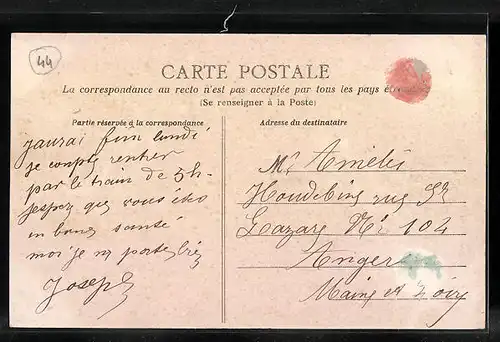 44
CARTE POSTALE
La correspondance au recto n'est pas acceptée par tous les pays
(Se renseigner à la Poste)
Partie réservée à la correspondance
Adresse du destinataire
jaurai fini lundi
je compte rentrer
par le train de 5h
jespez que vous éte
en bone santé
moi je me porte bien
Joseph
Mr Amélie
Houdebine rue St
Lazare No 104
Angers
Maine et Loire